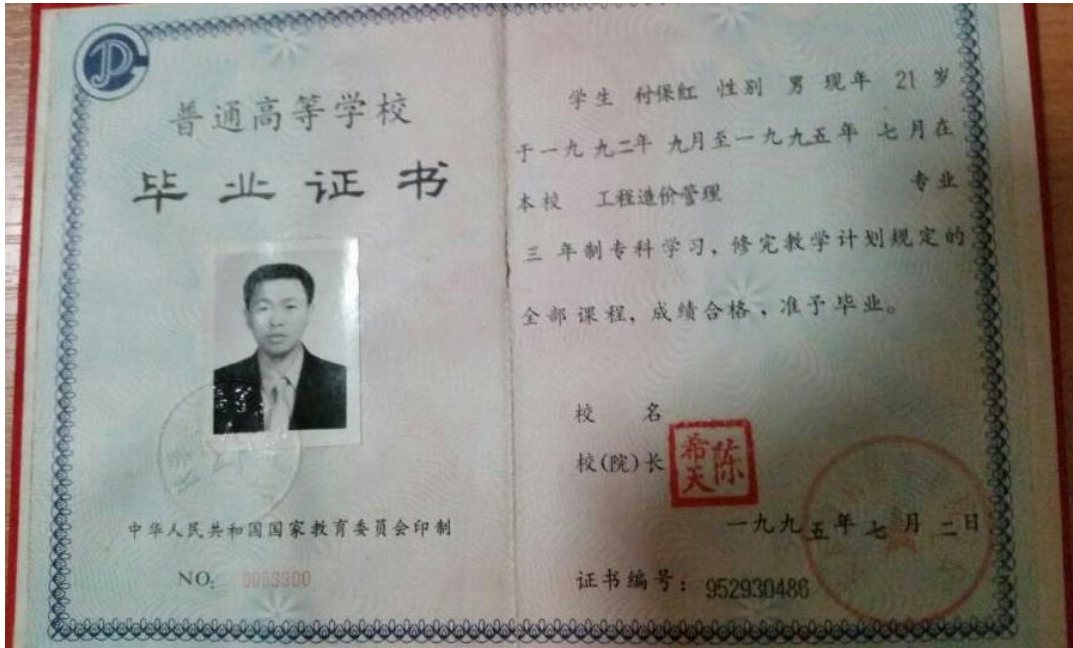 普通高等学校
毕业证书
中华人民共和国国家教育委员会印制
NO: 0053300
学生 付保红 性别 男 现年 21 岁
于一九九二年 九月至一九九五年 七月在
本校 工程造价管理 专业
三 年制专科学习，修完教学计划规定的
全部课程，成绩合格，准予毕业。
校 名
校(院)长 陈希天
一九九五年七月二日
证书编号：952930486